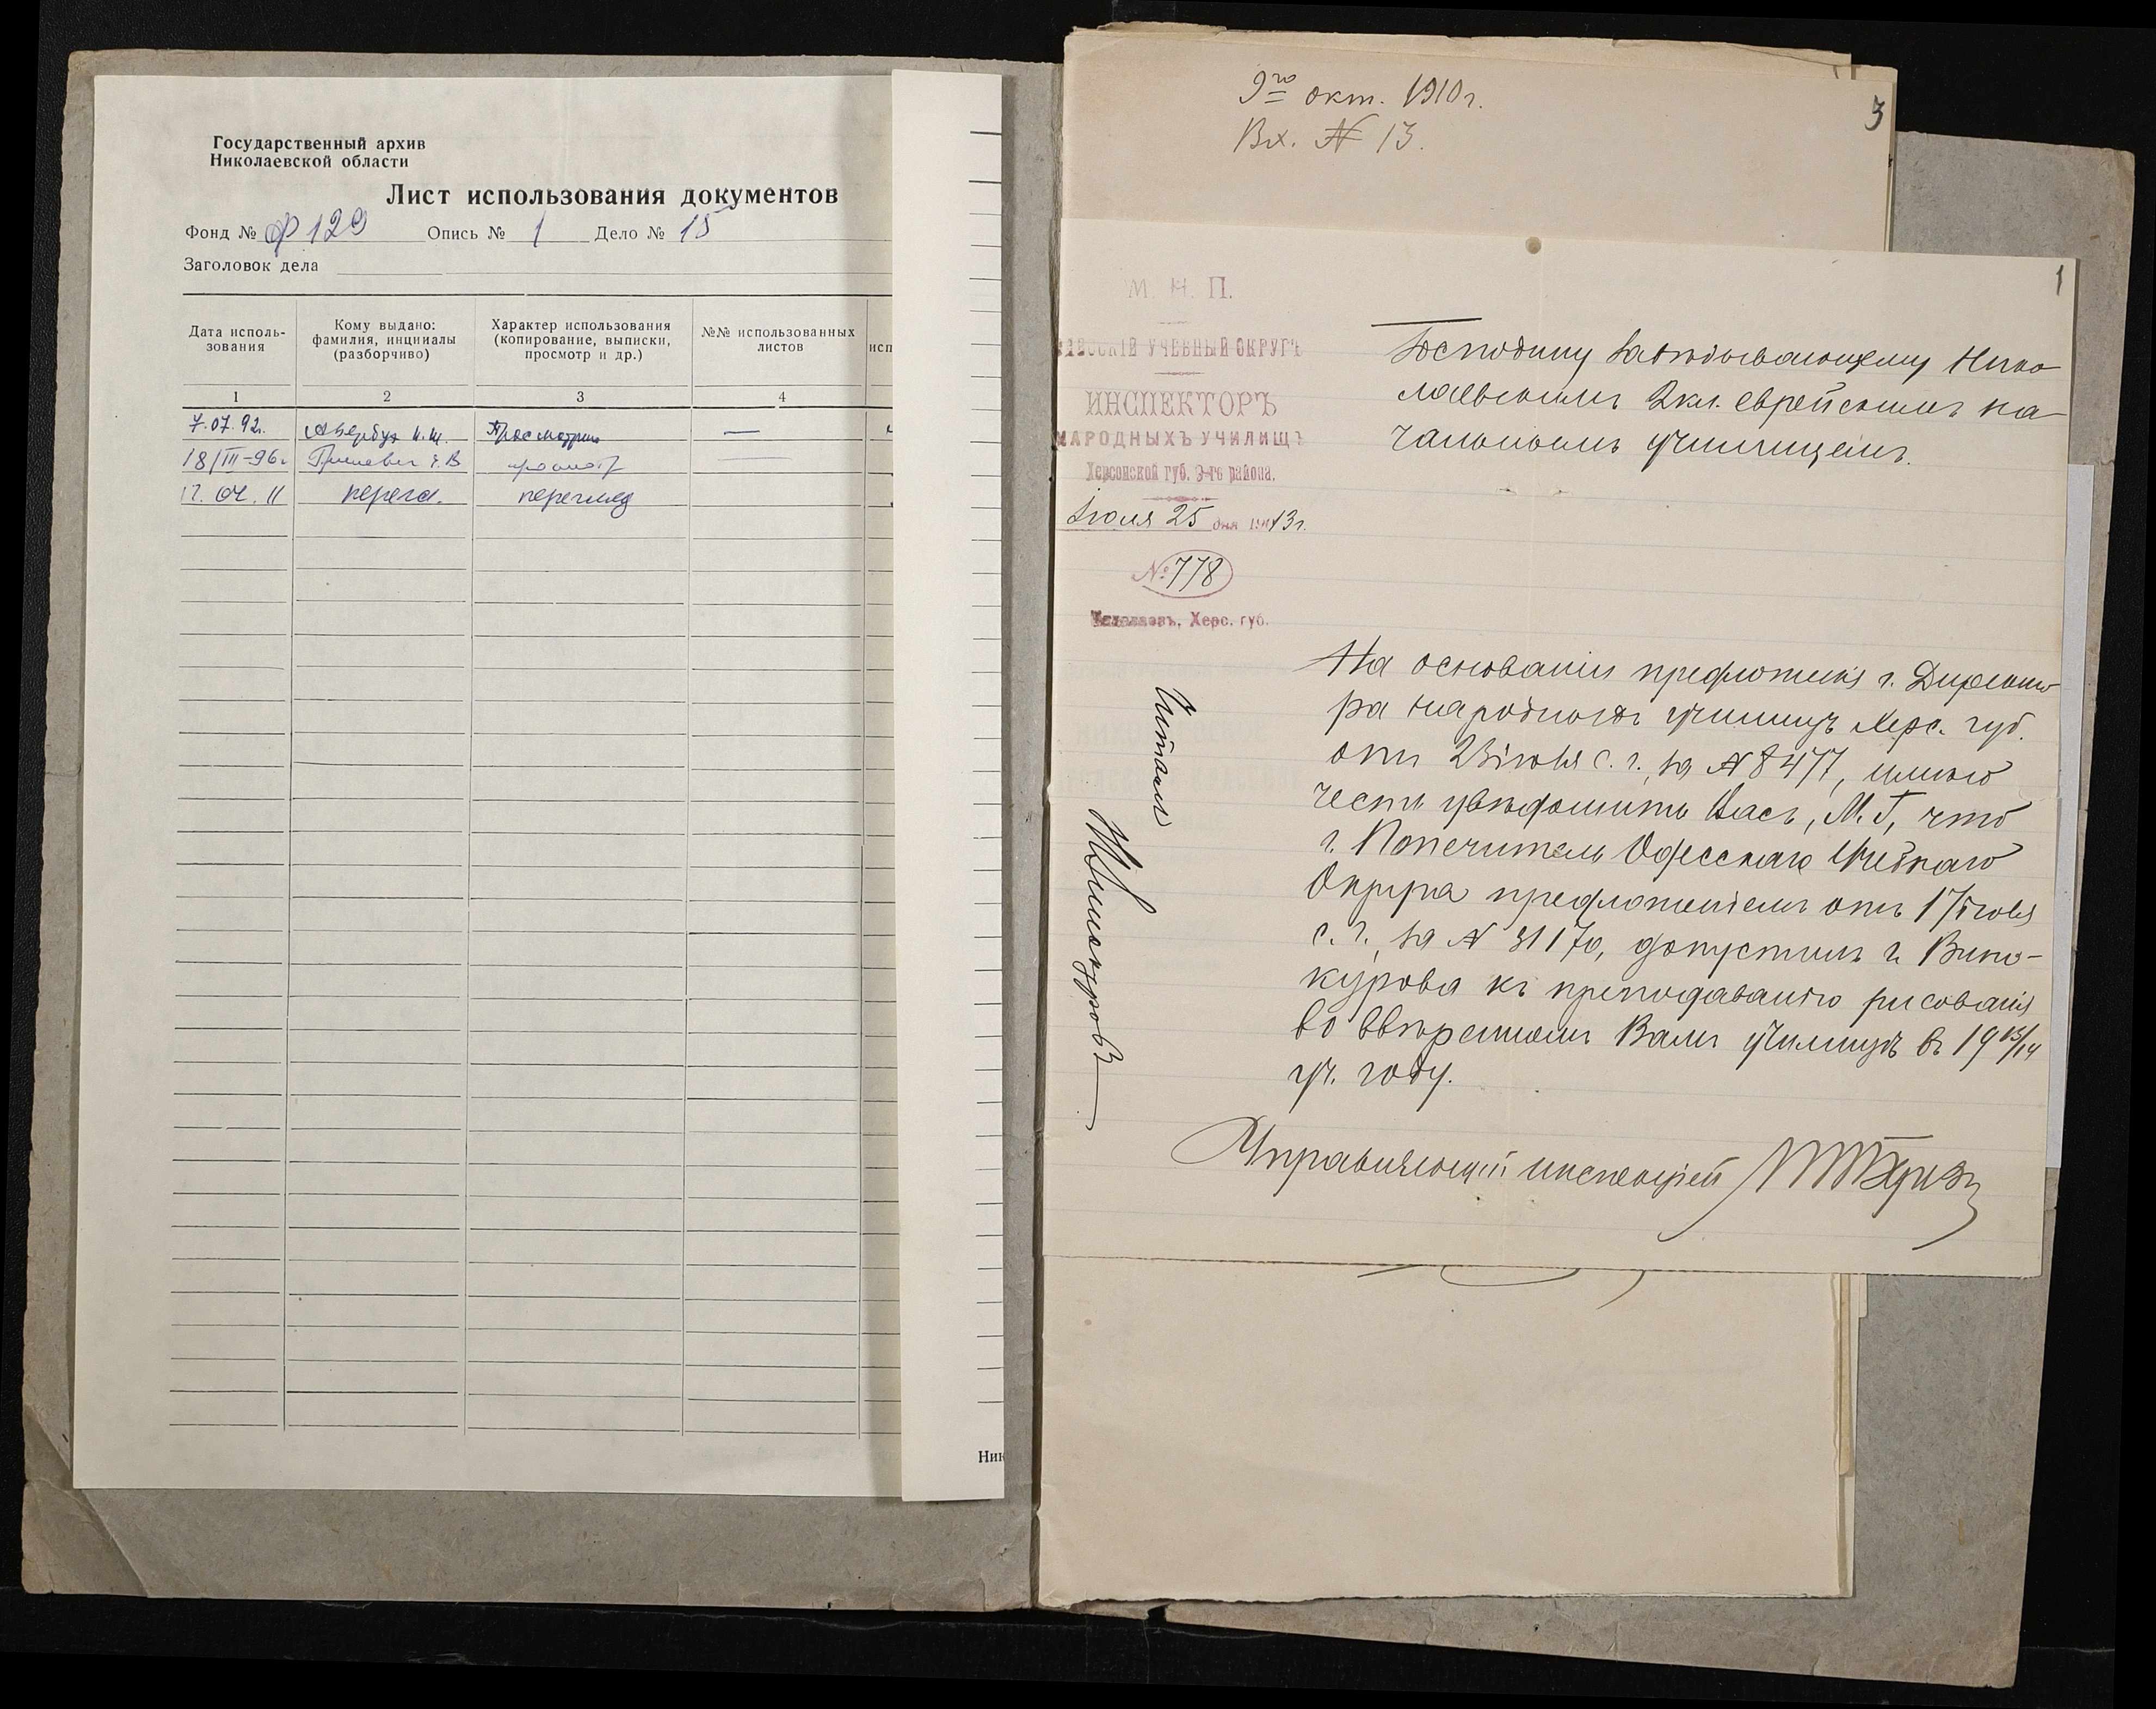 Государственный архив
Николаевской области
Лист использования документов
Фонд № Ф 129 Опись № 1 Дело № 15
Заголовок дела
Дата исполь-
зования
Кому выдано:
фамилия, инициалы
(разборчиво)
Характер использования
(копирование, выписки,
просмотр и др.)
№№ использованных
листов
исп
1 2 3 4
7.07.92г. Авербух И.Ш. Просмотрен —
18/III-96г. просмотр
17.04.11 перегл. перегляд
Ник
9го окт. 1910 г.
Вх. № 13.
3
1
М. Н. П.
ОДЕССКІЙ УЧЕБНЫЙ ОКРУГЪ
ИНСПЕКТОРЪ
НАРОДНЫХЪ УЧИЛИЩЪ
Херсонской губ. 3-го района.
Іюля 25 дня 1913 г.
№ 778
Николаевъ, Херс. губ.
Господину Завѣдывающему Нико-
лаевскимъ 2кл. еврейскимъ на-
чальнымъ училищемъ.
На основаніи предложенія г. Директо-
ра народныхъ училищъ Херс. губ.
отъ 23 іюля с. г., за № 8477, имѣю
честь увѣдомить Васъ, М. Г., что
г. Попечитель Одесскаго Учебнаго
Округа предложеніемъ отъ 17 іюля
с. г., за № 31170, допустилъ г. Вино-
курова къ преподаванію рисованія
во ввѣренномъ Вамъ училищѣ въ 19 13/14
уч. году.
Управляющій инспекціей
Читалъ